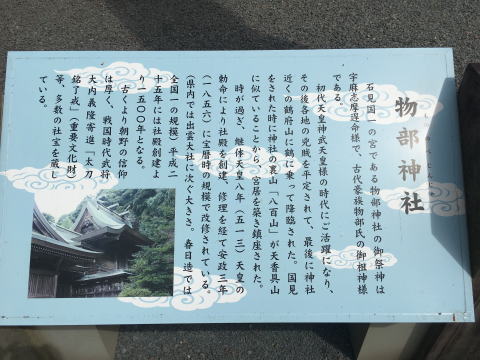 物部神社
石見国一の宮である物部神社の御祭神は
宇麻志摩遅命様で、古代豪族物部氏の御祖神様
である。
初代天皇神武天皇様の時代にご活躍になり、
その後各地の兇賊を平定されて、最後に神社
近くの鶴府山に鶴に乗って降臨された。国見
をされた時に神社の裏山「八百山」が天香具山
に似ていることから、宮居を築き鎮座された。
時が過ぎ、継体天皇八年(五一三)天皇の
勅命により社殿を創建、修理を経て安政三年
(一八五六)に宝暦時の規模で改修されている。
(県内では出雲大社に次ぐ大きさ。春日造では
全国一の規模)平成二
十五年には社殿創建よ
り一五〇〇年となる。
古くより朝野の信仰
は厚く、戦国時代武将
大内義隆寄進「太刀
銘了戒」(重要文化財)
等、多数の社宝を蔵し
ている。